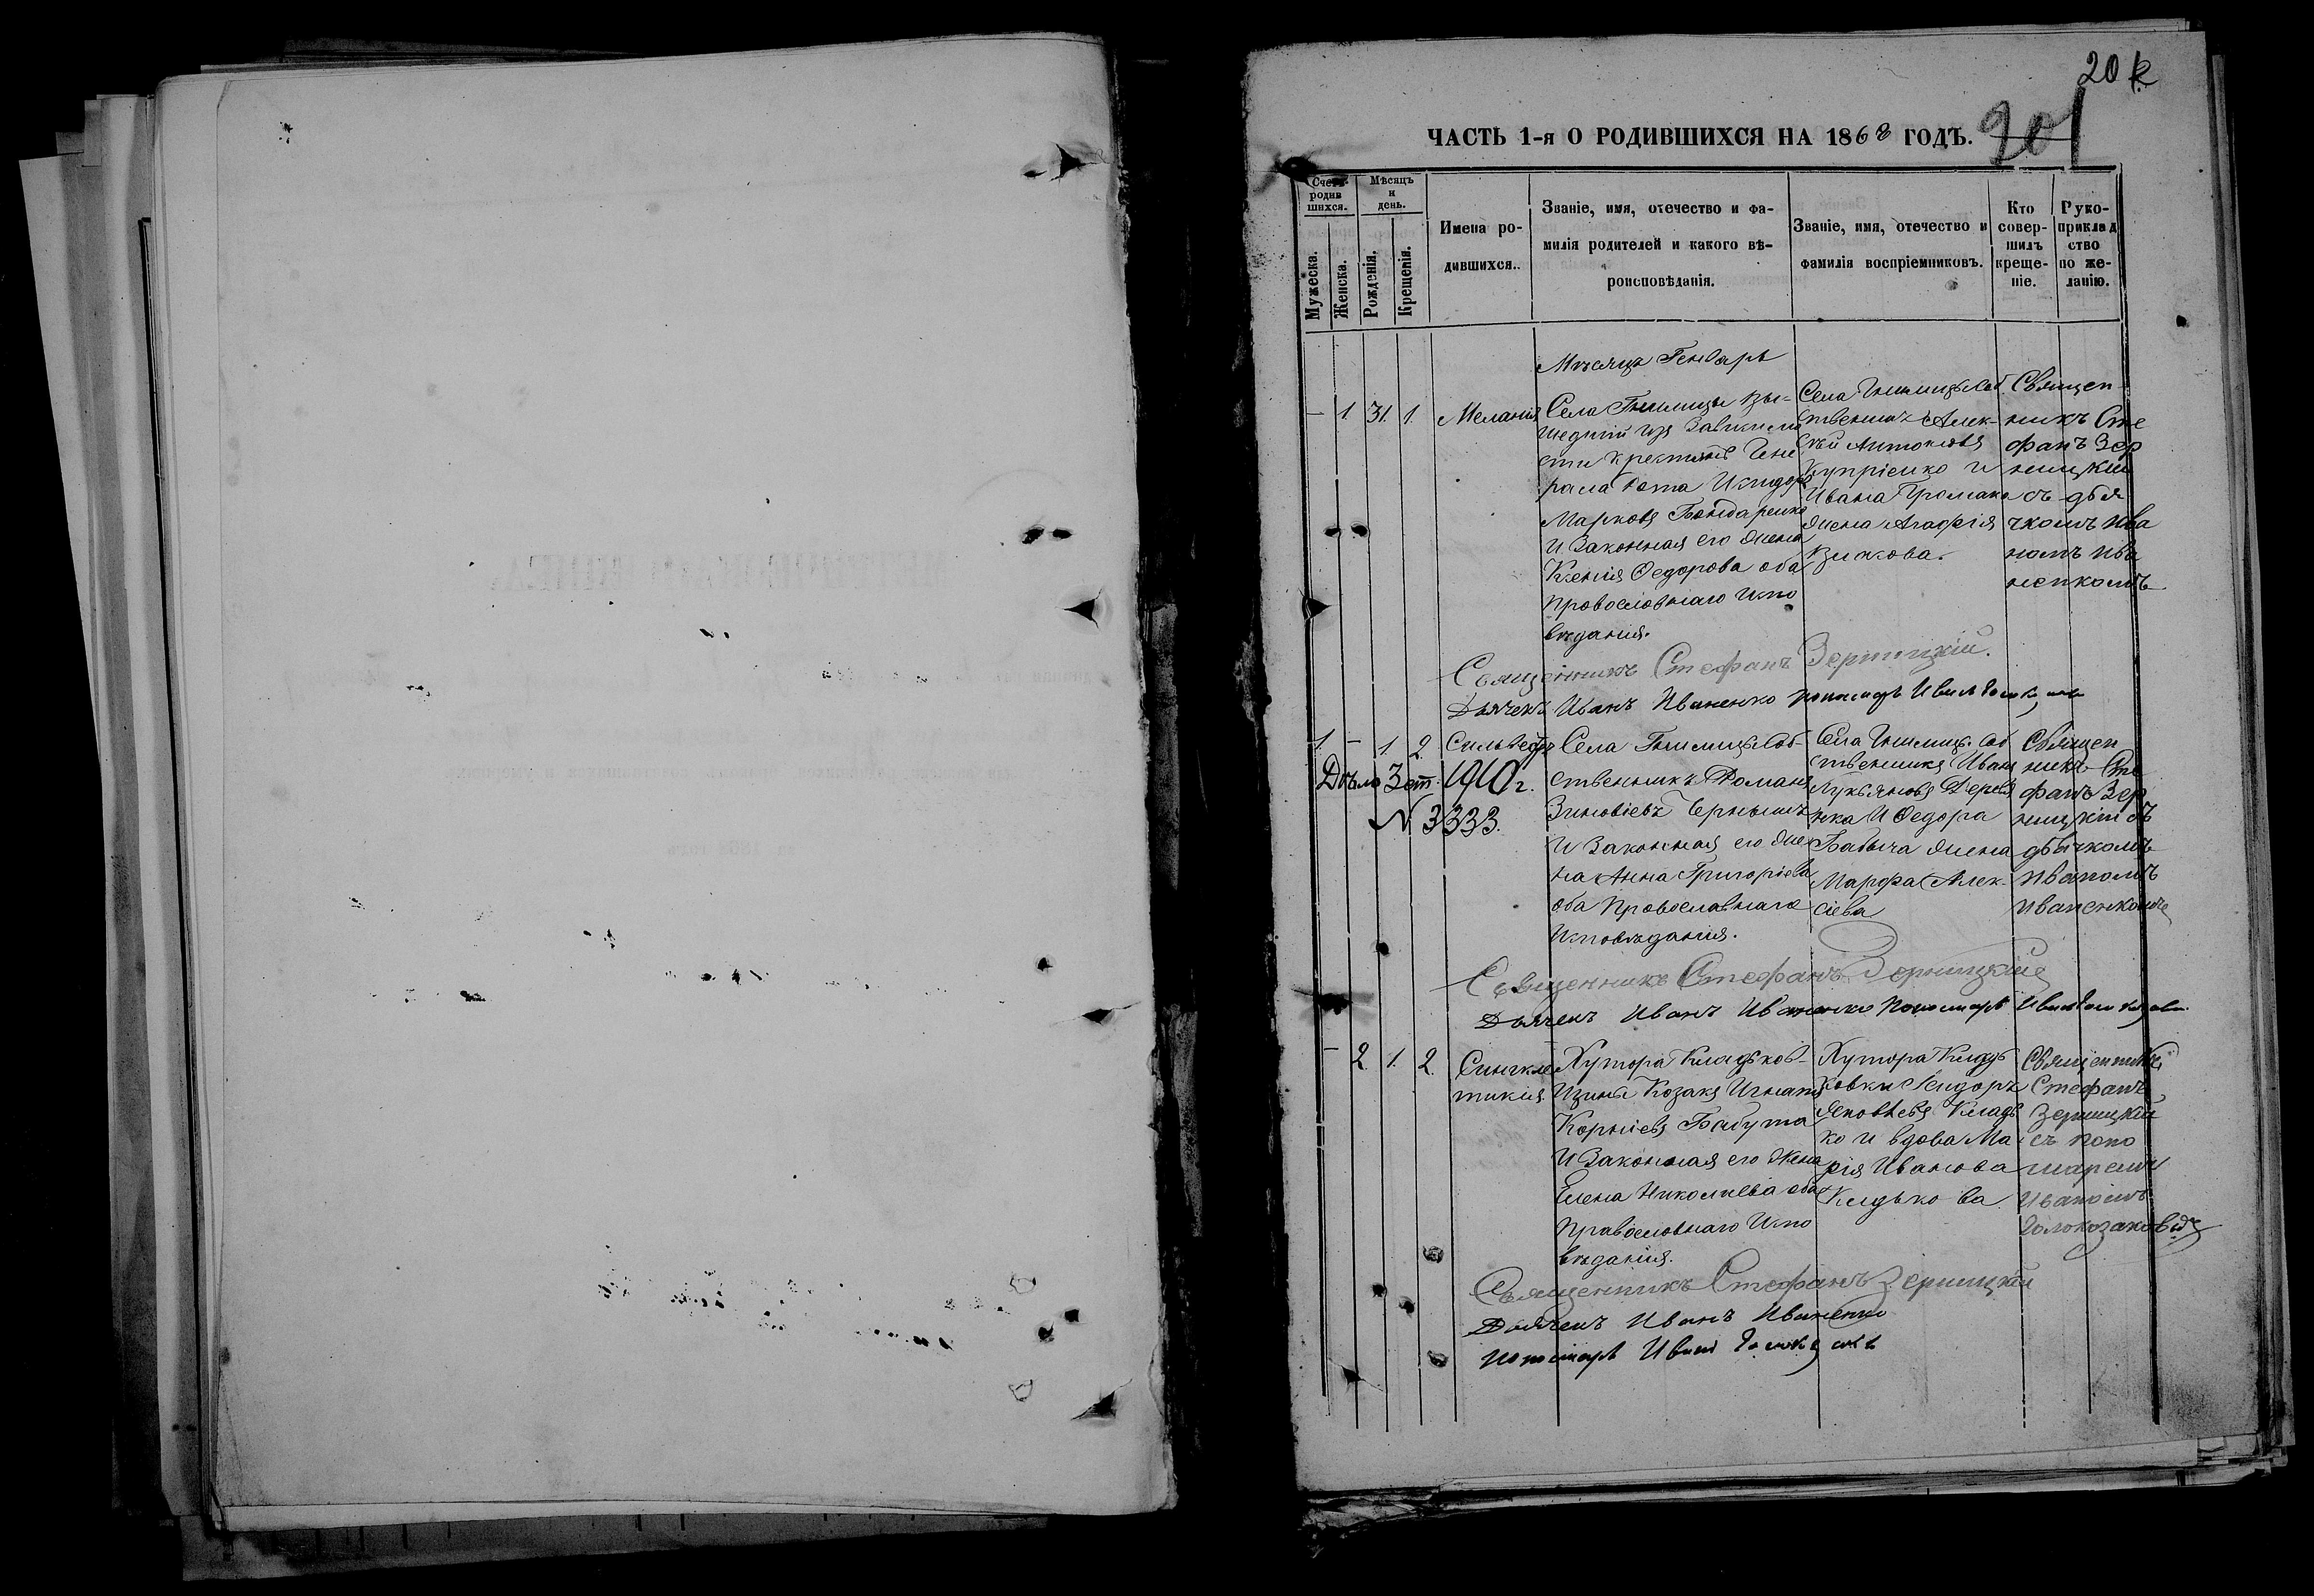 20
201
ЧАСТЬ 1-я О РОДИВШИХСЯ НА 1868 ГОДЪ.
Счетъ родив шихся.
Мѣсяцъ и день.
Мужеска.
Женска.
Рожденія.
Крещенія.
Имена ро-
дившихся..
Званіе, имя, отечество и фа-
милія родителей и какого вѣ-
роисповѣданія.
Званіе, имя, отечество и
фамилія воспріемниковъ.
Кто
совер-
шилъ
креще-
ніе.
Руко-
приклад
ство
по же-
ланію.
Мѣсяцъ Генварь
— 1 31 1. Меланія
Села Гнилицы вы-
шедшій изъ Зависимо
сти крестьянъ Гене
рала Рота Исидоръ
Марковъ Бондаренко
и Законная его жена
Ксенія Федорова оба
православнаго испо
вѣданія.
Села Гнилицы Соб
ственникъ Алек-
сѣй Антоновъ
Купріенко и
Ивана Громака
жена Агафія
Священ
никъ Сте
фанъ Зер
ницкій
съ дья
чкомъ Ива
номъ Ива
ненкомъ
Священникъ Стефанъ Зерницкій.
Дьячекъ Иванъ Иваненко
1 — 1 2 Сильвестръ
Дѣло 3 ст. 1910 г.
№ 3333.
Села Гнилицы Соб-
ственникъ Романъ
Зиновіевъ Чернышъ
и Законная его же
на Анна Григоріева
оба православнаго
исповѣданія.
Села Гнилицы Соб
ственника Иванъ
Лукьяновъ
нка и Федора
Бабыча жена
Марфа Алек-
сіева
Священ
никъ Сте
фанъ Зер
ницкій съ
дьячкомъ
Иваномъ
Иваненкомъ
Священникъ Стефанъ Зерницкій
Дьячекъ Иванъ Иваненко Пономарь
— 2 1. 2. Синкле
тикія
Хутора Кладьков-
щины Козакъ Игнатій
Корніевъ Бабута
и Законная его жена
Елена Николаева оба
православнаго испо
вѣданія.
Хутора Кладь
ковки Исидоръ
Яковлевъ Кладь
ко и вдова Ма
рія Иванова
Кладько ва.
Священникъ
Стефанъ
Зерницкій
съ поно
маремъ
Иваномъ
Священникъ Стефанъ Зерницкій
Дьячекъ Иванъ Иваненко
Пономарь Иванъ